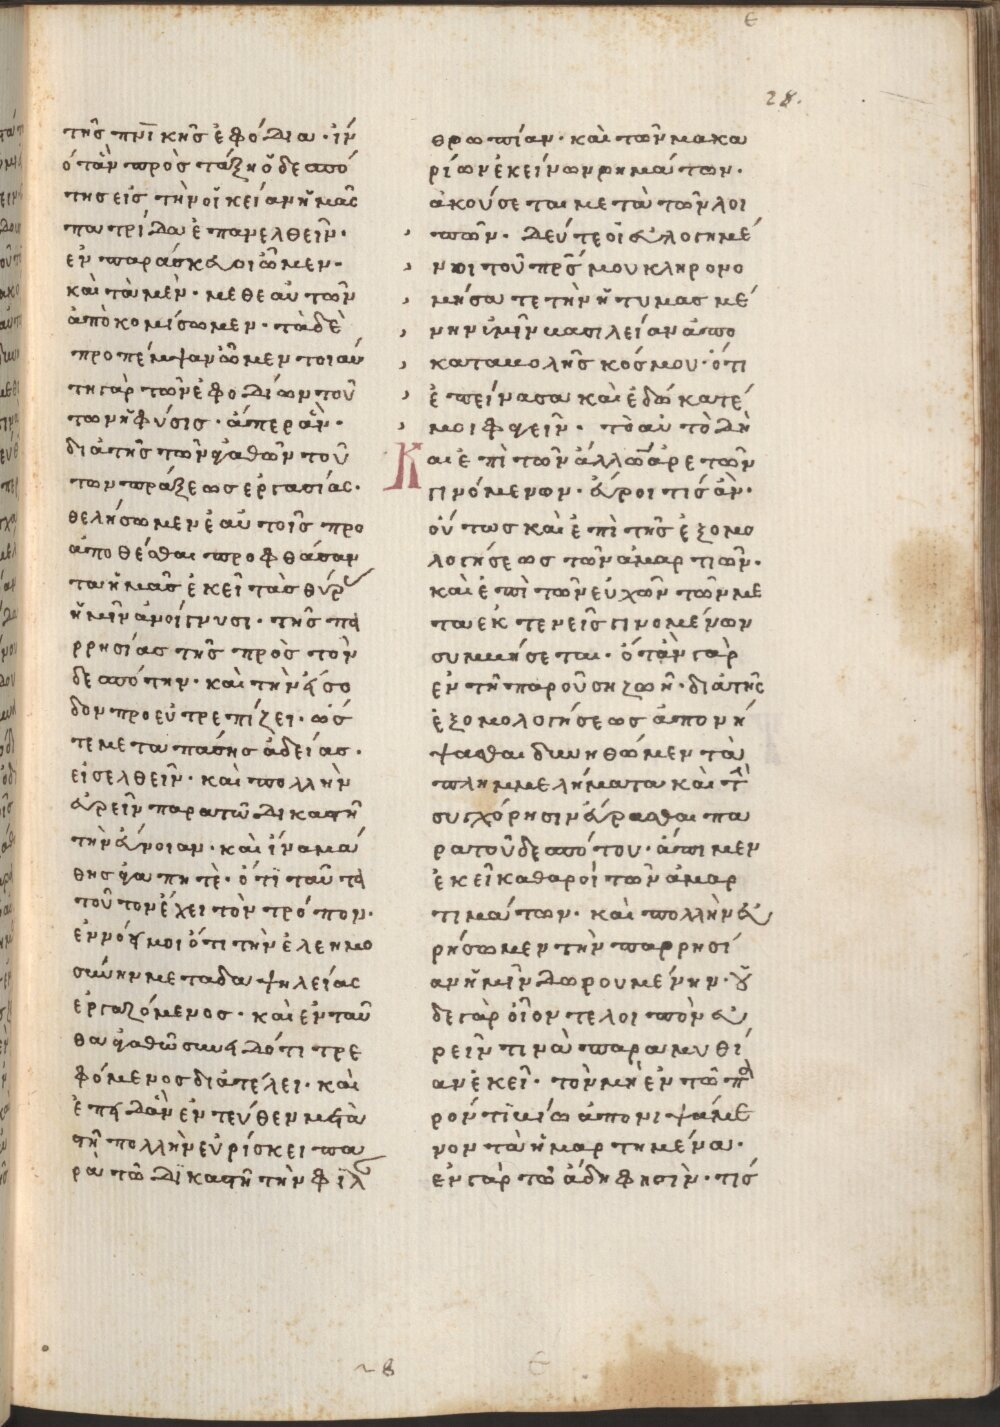 ϵ
28.
τῆς πνϊκῆς ἐφόδια· ἵν
ὁτὰν πρὸς τάξη ὁ δεσπό
της εἰς τὴν οἰκείαν ἡμᾶς
πατρίδα ἐπανελθεῖν·
ἐν παρασκευοι ὦμεν·
καὶ τὰ μὲν· μεθεαυτῶν
ἀποκομίσωμεν· τὰ δὲ
προπέμψαν ὦμεν τοιαύ
τη γὰρ τῶν ἐφοδίων τού
των ἡ φύσις· ἅπερ ἂν·
διὰ τῆς τῶν ἀγαθῶν τού
των πράξεως ἐργασίας·
θελήσωμεν ἑαυτοῖς προ
αποθέσθαι προφθάσαν
τα ἡμᾶς ἐκεῖ τὰς θύρ
ἡμῖν ἀνοίγνυσι· τῆς πα
ρρησίας τῆς πρὸς τὸν
δεσπότην· καὶ τὴν εἴσο
δον προευτρεπίζει· ὡς
τε μετα πάσης ἀδείας·
εἰσελθεῖν· καὶ πολλὴν
εὑρεῖν παρα τῶ δικαστῆ
τὴν εὔνοιαν· καὶ ἵνα μά
θης ἀγαπητὲ· ὅτι ταῦτα
τοῦτον ἔχει τὸν τρόπον·
ἐννόει μοι ὅτι τὴν ἐλεημο
σύνην μετα δαψηλείας
ἐργαζόμενος· καὶ ἐνταῦ
θα ἀγαθῶ συνειδότι τρε
φόμενος διάτέλει· καὶ
ἐπειδὰν ἐντεύθεν μετὰ
στῆ πολλὴν εὑρίσκει πα
ρὰ τῶ δικαστῆ τὴν φιλ
θρωπίαν· καὶ τῶν μακα
ρίων ἐκείνων ρημάτων·
ἀκούσεται μετὰ τῶν λοι
πῶν· δεύτε οἱ εὐλογημέ
νοι τοῦ πρς μου κληρονο
μήσατε τὴν ἡτυμασμέ
νην ὑμῖν βασιλείαν ἀπο
καταβολῆς κόσμου· ὅτι
ἐπείνασα καὶ ἐδώκατέ
μοι φαγεῖν· τὸ αὐτὸ δὴ
Και ἐπὶ τῶν ἄλλων ἀρετῶν
γινόμενον· εὕροι τίς ἂν·
οὕτως καὶ ἐπὶ τῆς ἐξομο
λογήσεως τῶν ἁμαρτιῶν·
καὶ ἐπὶ τῶν εὐχῶν τῶν με
τα ἐκτενεῖς γινομένων
συμβήσεται· ὁτὰν γὰρ
ἐν τῆ παρούση ζωῆ· διὰ τῆς
ἐξομολογήσεως ἀπονή
ψασθαι δυνηθῶμεν τὰ
πλημμελήματα καὶ τὴ
συγχόρησιν εὕρασθαι πα
ρα τοῦ δεσπότου· ἄπιμεν
ἐκεῖ καθαροὶ τῶν ἁμαρ
τιμάτων· καὶ πολλὴν εὑ
ρήσωμεν τὴν παρρησί
αν ἡμῖν δωρουμένην· οὐ
δε γὰρ οἷον τε λοιπὸν εὑ
ρεῖν τινὰ παραμυθί
αν ἐκεῖ· τὸν μὴ ἐν τῶ πα
ρόντι βίω ἀπονιψάμε
νον τὰ ἡμαρτημένα·
ἐν γὰρ τῶ ἅδη φησὶν· τίς
28
ϵ